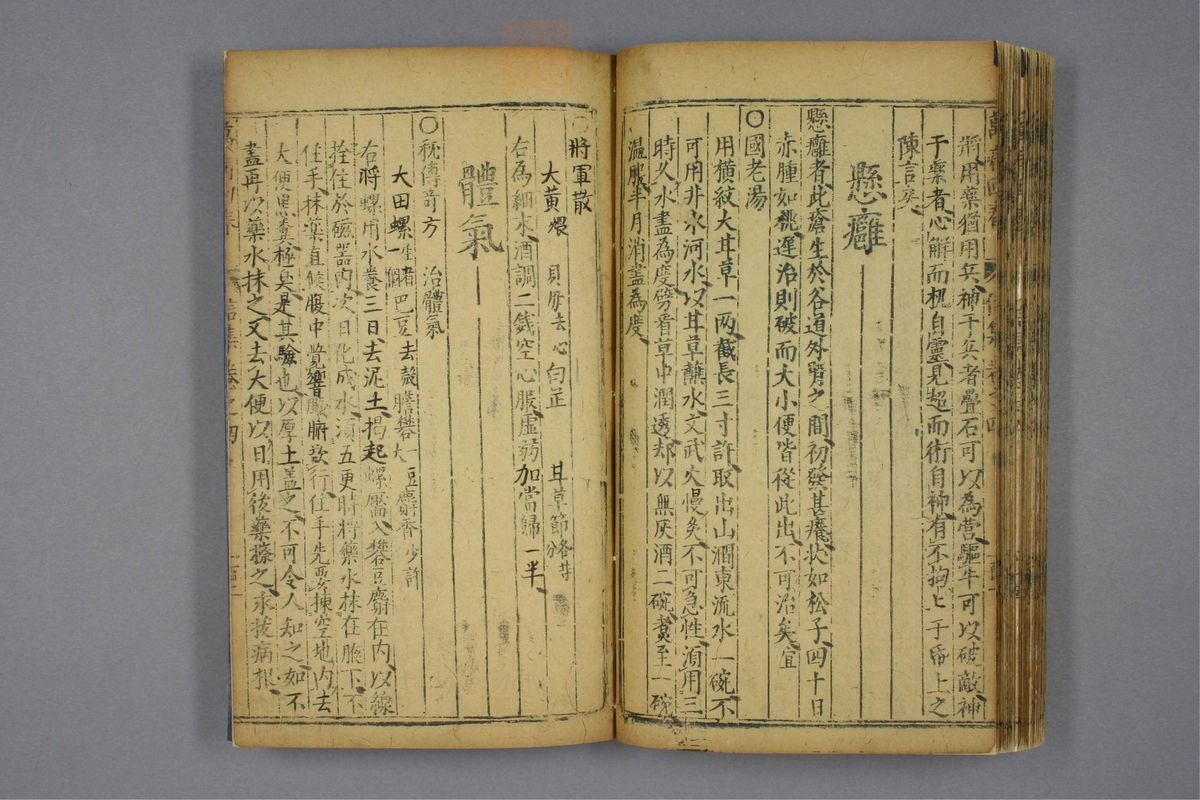 將用藥猶用兵神于兵者疊石可以為営驅牛可以破敵神
于藥者心解而机自靈見超而術自神有不拘匕于帋上之
陳言矣
懸癰
懸癰者此瘡生於谷道外腎之間初發甚癢状如松子四十日
赤腫如桃遲治則破而大小便皆從此出不可治矣宜
〇國老湯
用横紋大甘草一两截長三寸許取出山澗東流水一碗不
可用井水河水以甘草蘸水文武火慢炙不可急性湏用三
時久水盡為度劈看草中潤透却以無灰酒二碗煑至一碗
温服半月消盡為度
〇將軍散
大黄煨 貝母去心 白芷 甘草節各等分
右為細末酒調二錢空心服虚弱加當歸一半
體氣
〇秘傳竒方 治體氣
大田螺一個生者 巴豆去殻 膽礬一豆大 麝香少許
右將螺用水養三日去泥土揭起螺靨入礬豆麝在内以線
拴住於磁器内次日化成水湏五更時將藥水抹在腋下不
住手抹藥直候腹中覺響臟腑欲行住手先要揀空地内去
大便黒糞極臭是其驗也以厚土盖之不可令人知之如不
盡再以藥水抹之又去大便以日用後藥擦之永拔病根